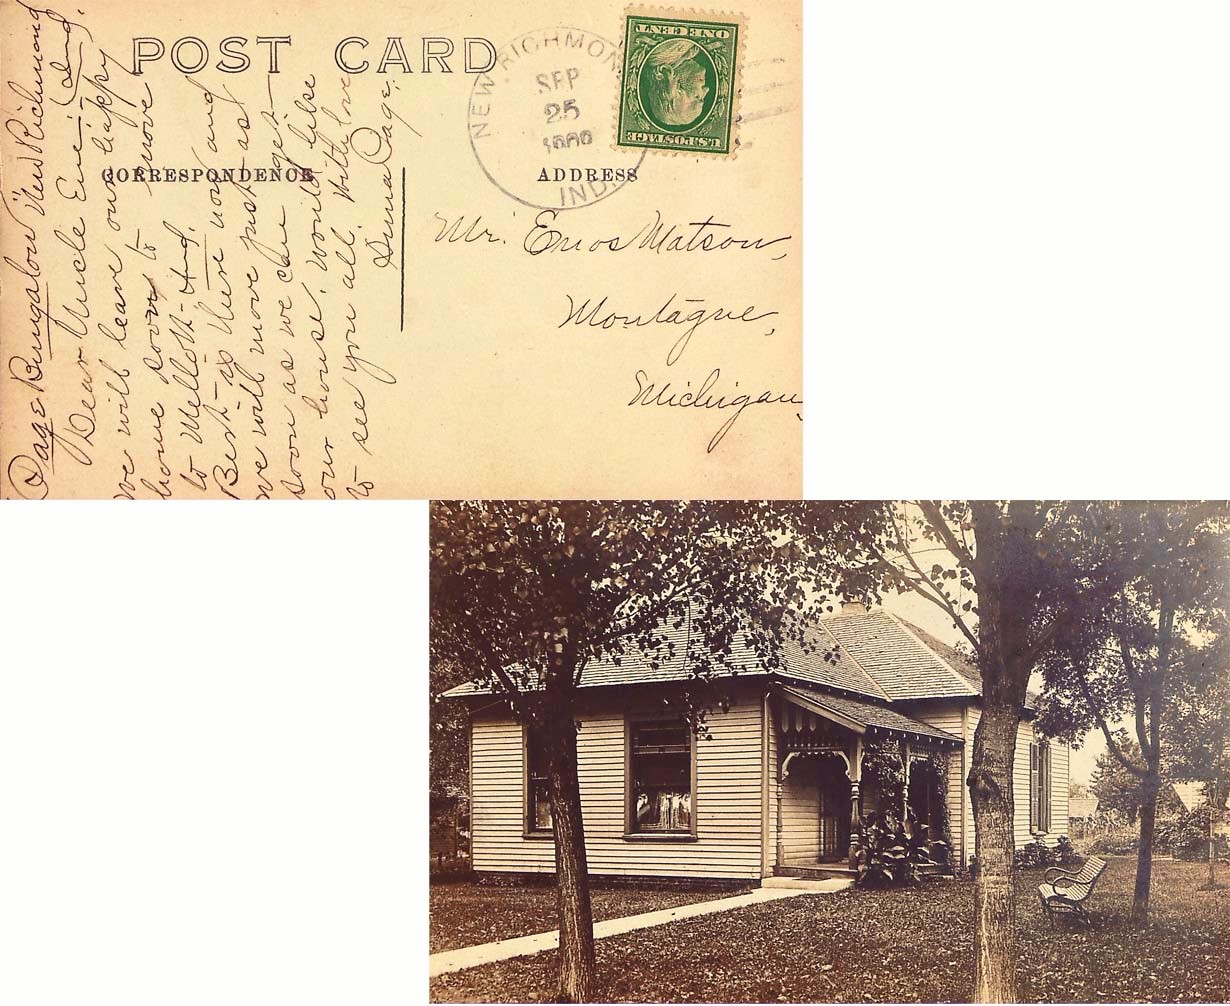 POST CARD
CORRESPONDENCE
ADDRESS
NEW RICHMON
SEP
25
IND.
ONE CENT
U.S. POSTAGE
Mr. Enos Matson,
Montague,
Michigan,
Page Bungalow New Richmond
Ind.
Dear Uncle Enos:
we will leave our happy
home soon to move
to Mellott-Ind.
Best is there now and
we will move just as
soon as we can get
our house. Would like
to see you all. With love
Page.